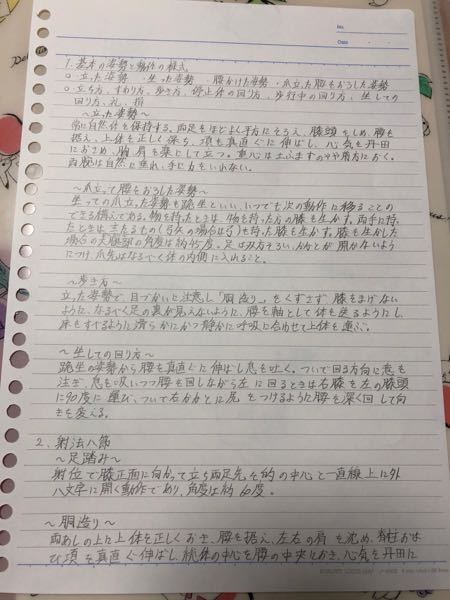 No.
Date
1. 基本の姿勢と動作の様式
○ 立った姿勢・坐った姿勢・腰かけた姿勢・爪立って腰をおろした姿勢
○ 立ち方、すわり方、歩き方、停止体の回り方、歩行中の回り方、坐しての
回り方、礼、揖
〜立った姿勢〜
常に自然体を保持する。両足をほどよく平行にそろえ、膝頭をしめ、腰を
据え、上体を正しく保ち、項を真直ぐに伸ばし、心気を丹田
におさめ、胸、肩を楽にして立つ。重心は土ふまずのやや前方におく。
両腕は自然に垂れ、手に力をいれない。
〜爪立って腰をおろした姿勢〜
坐っての爪立った姿勢を跪坐といい、いつでも次の動作に移ることの
できる構えである。物を持ったときは、物を持った方の膝を生かす。両手に持っ
たときは、主たるもの(弓矢の場合は弓)を持った膝を生かす。膝を生かした
場合の大腿部の角度は約45度。足は双方そろい、かかとが開かないよう
につけ、爪先はなるべく体の内側に入れること。
〜歩き方〜
立った姿勢で、目づかいに注意し「胴造り」をくずさず、膝をまげない
ように、なるべく足の裏が見えないように、腰を軸として体を送るようにし、
床をすべるように滑らかにかつ静かに呼吸に合わせて上体を運ぶ。
〜坐しての回り方〜
跪坐の姿勢から腰を真直ぐに伸ばし息を吐く。ついで回る方向に意を
注ぎ、息を吸いつつ腰を回しながら左に回るときは右膝を左の膝頭
に90度に運び、ついで右かかとに尻をつけるように腰を深く回して向
きを変える。
2、射法八節
〜足踏み〜
射位で脇正面に向かって立ち両足先を的の中心と一直線上に外
八文字に開く動作であり、角度は約60度。
〜胴造り〜
両あしの上に上体を正しくおき、腰を据え、左右の肩を沈め、脊柱およ
び項を真直ぐ伸ばし、総体の中心を腰の中央におき、心気を丹田に